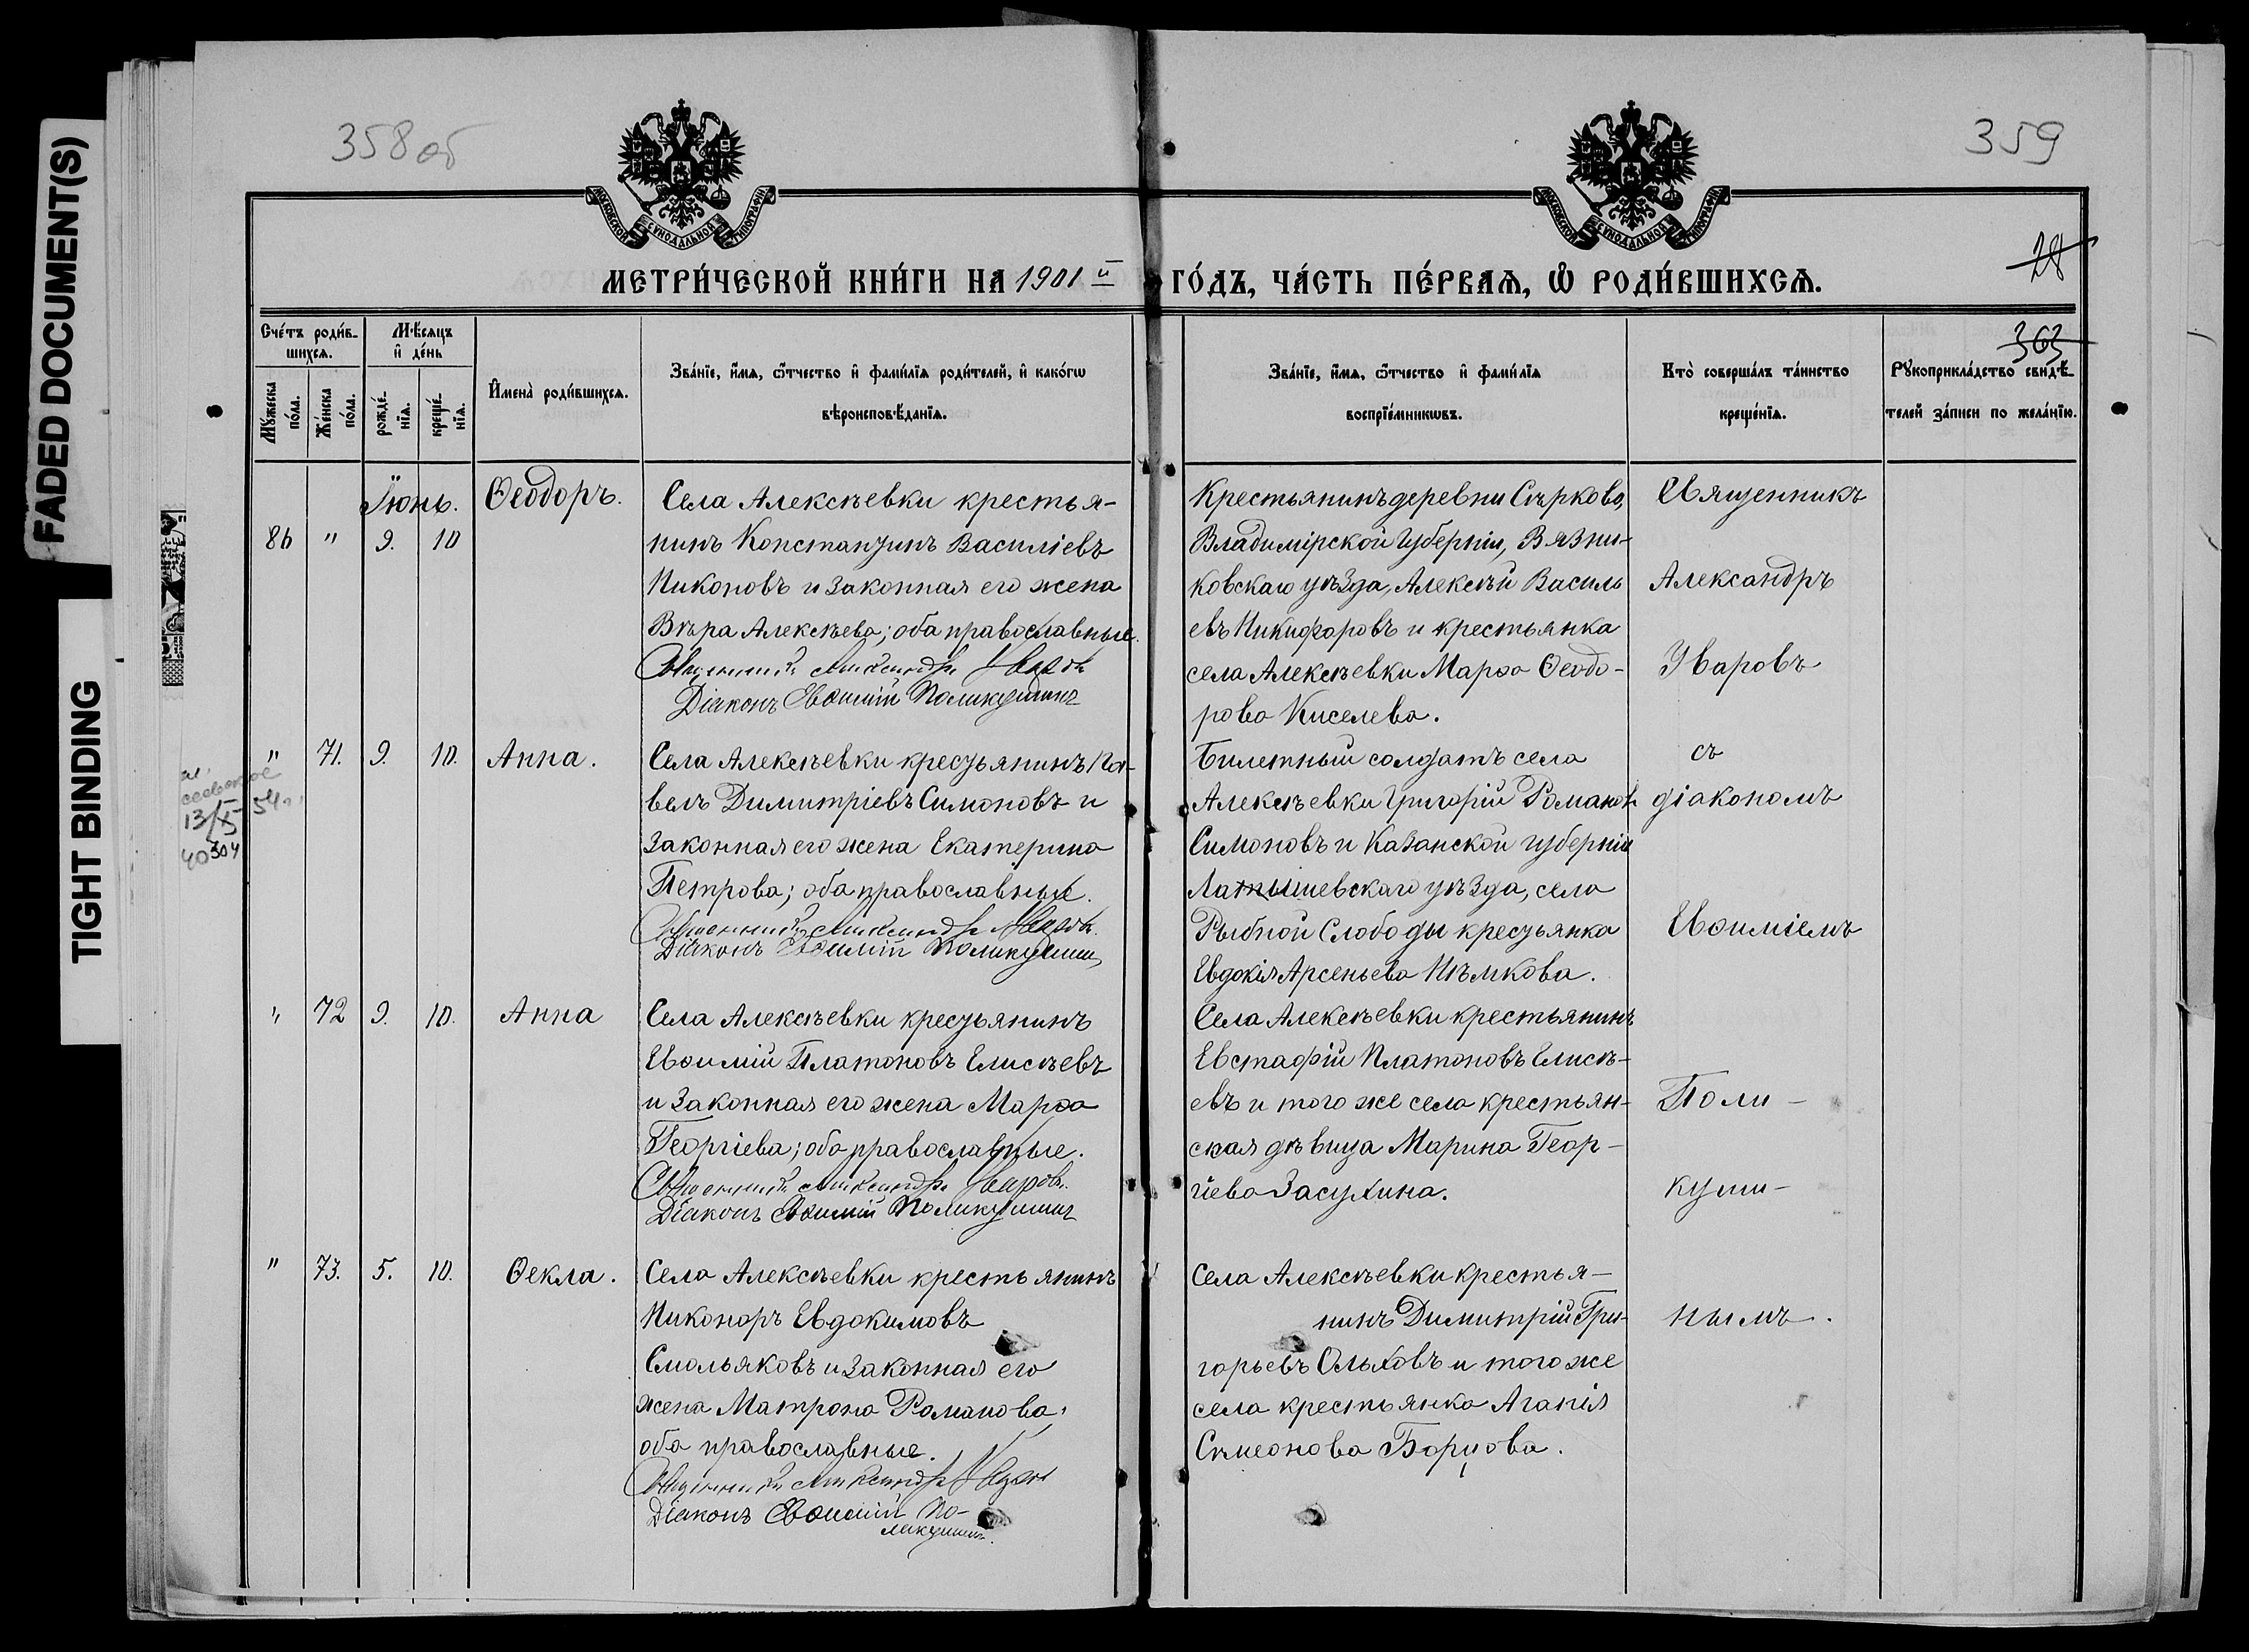 FADED DOCUMENT(S)
TIGHT BINDING
358 об
359
МОСКОВСКОЙ СУНОДАЛЬНОЙ ТИПОГРАФІИ
МОСКОВСКОЙ СУНОДАЛЬНОЙ ТИПОГРАФІИ
28
МЕТРИ́ЧЕСКОЙ КНИ́ГИ НА 1901 й ГО́ДЪ, ЧА́СТЬ ПЕ́РВАѦ, Ѽ РОДИ́ВШИХСѦ.
363
Сче́тъ роди́в-
шихсѧ.
Мꙋ́жеска по́ла.
Же́нска по́ла.
Мѣ́сѧцъ
и҆ де́нь
рожде́-
нїѧ.
креще́-
нїѧ.
И҆мена̀ роди́вшихсѧ.
Зва́нїе, и҆́мѧ, ѻ҆́тчество и҆ фами́лїѧ роди́телей, и҆ како́гѡ
вѣроисповѣ́данїѧ.
Зва́нїе, и҆́мѧ, ѻ҆́тчество и҆ фами́лїѧ
воспрїе́мникѡвъ.
Кто̀ соверша́лъ та́инство
креще́нїѧ.
Рꙋкоприкла́дство свидѣ́-
телей за́писи по жела́нїю.
Іюнь.
86 " 9. 10 Ѳеодоръ.
Села Алексѣевки крестья-
нинъ Константинъ Василіевъ
Никоновъ и законная его жена
Вѣра Алексѣева; оба православные.
Священникъ Александръ Уваровъ
Діаконъ Евѳимій Поликушинъ
Крестьянинъ деревни Сѣркова,
Владимірской губерніи, Вязни-
ковскаго уѣзда, Алексѣй Василь
евъ Никифоровъ и крестьянка
села Алексѣевки Марѳа Ѳеодо-
рова Киселева.
Священникъ
Александръ
Уваровъ
съ
діакономъ
Евѳиміемъ
Поли-
куши-
нымъ.
13/X 54 г.
40304
" 71. 9. 10. Анна.
Села Алексѣевки крестьянинъ Па-
велъ Димитріевъ Симоновъ и
законная его жена Екатерина
Петрова; оба православные.
Священникъ Александръ Уваровъ.
Діаконъ Евѳимій Поликушинъ
Билетный солдатъ села
Алексѣевки Григорій Романовъ
Симоновъ и Казанской губерніи
Лаишевскаго уѣзда, села
Рыбной Слободы крестьянка
Евдокія Арсеньева Нѣмкова.
" 72 9. 10. Анна
Села Алексѣевки крестьянинъ
Евѳимій Платоновъ Елисѣевъ
и законная его жена Марѳа
Георгіева; оба православные.
Священникъ Александръ Уваровъ.
Діаконъ Евѳимій Поликушинъ
Села Алексѣевки крестьянинъ
Евстафій Платоновъ Елисѣ-
евъ и того же села крестьян-
ская дѣвица Марина Геор-
гіева Засухина.
" 73. 5. 10. Ѳекла.
Села Алексѣевки крестьянинъ
Никоноръ Евдокимовъ
Смольяковъ и законная его
жена Матрона Романова;
оба православные.
Священникъ Александръ Уваровъ
Діаконъ Евѳимій По-
ликушинъ.
Села Алексѣевки крестья-
нинъ Димитрій Гри-
горьевъ Ольховъ и того же
села крестьянка Агапія
Симеонова Борцова.